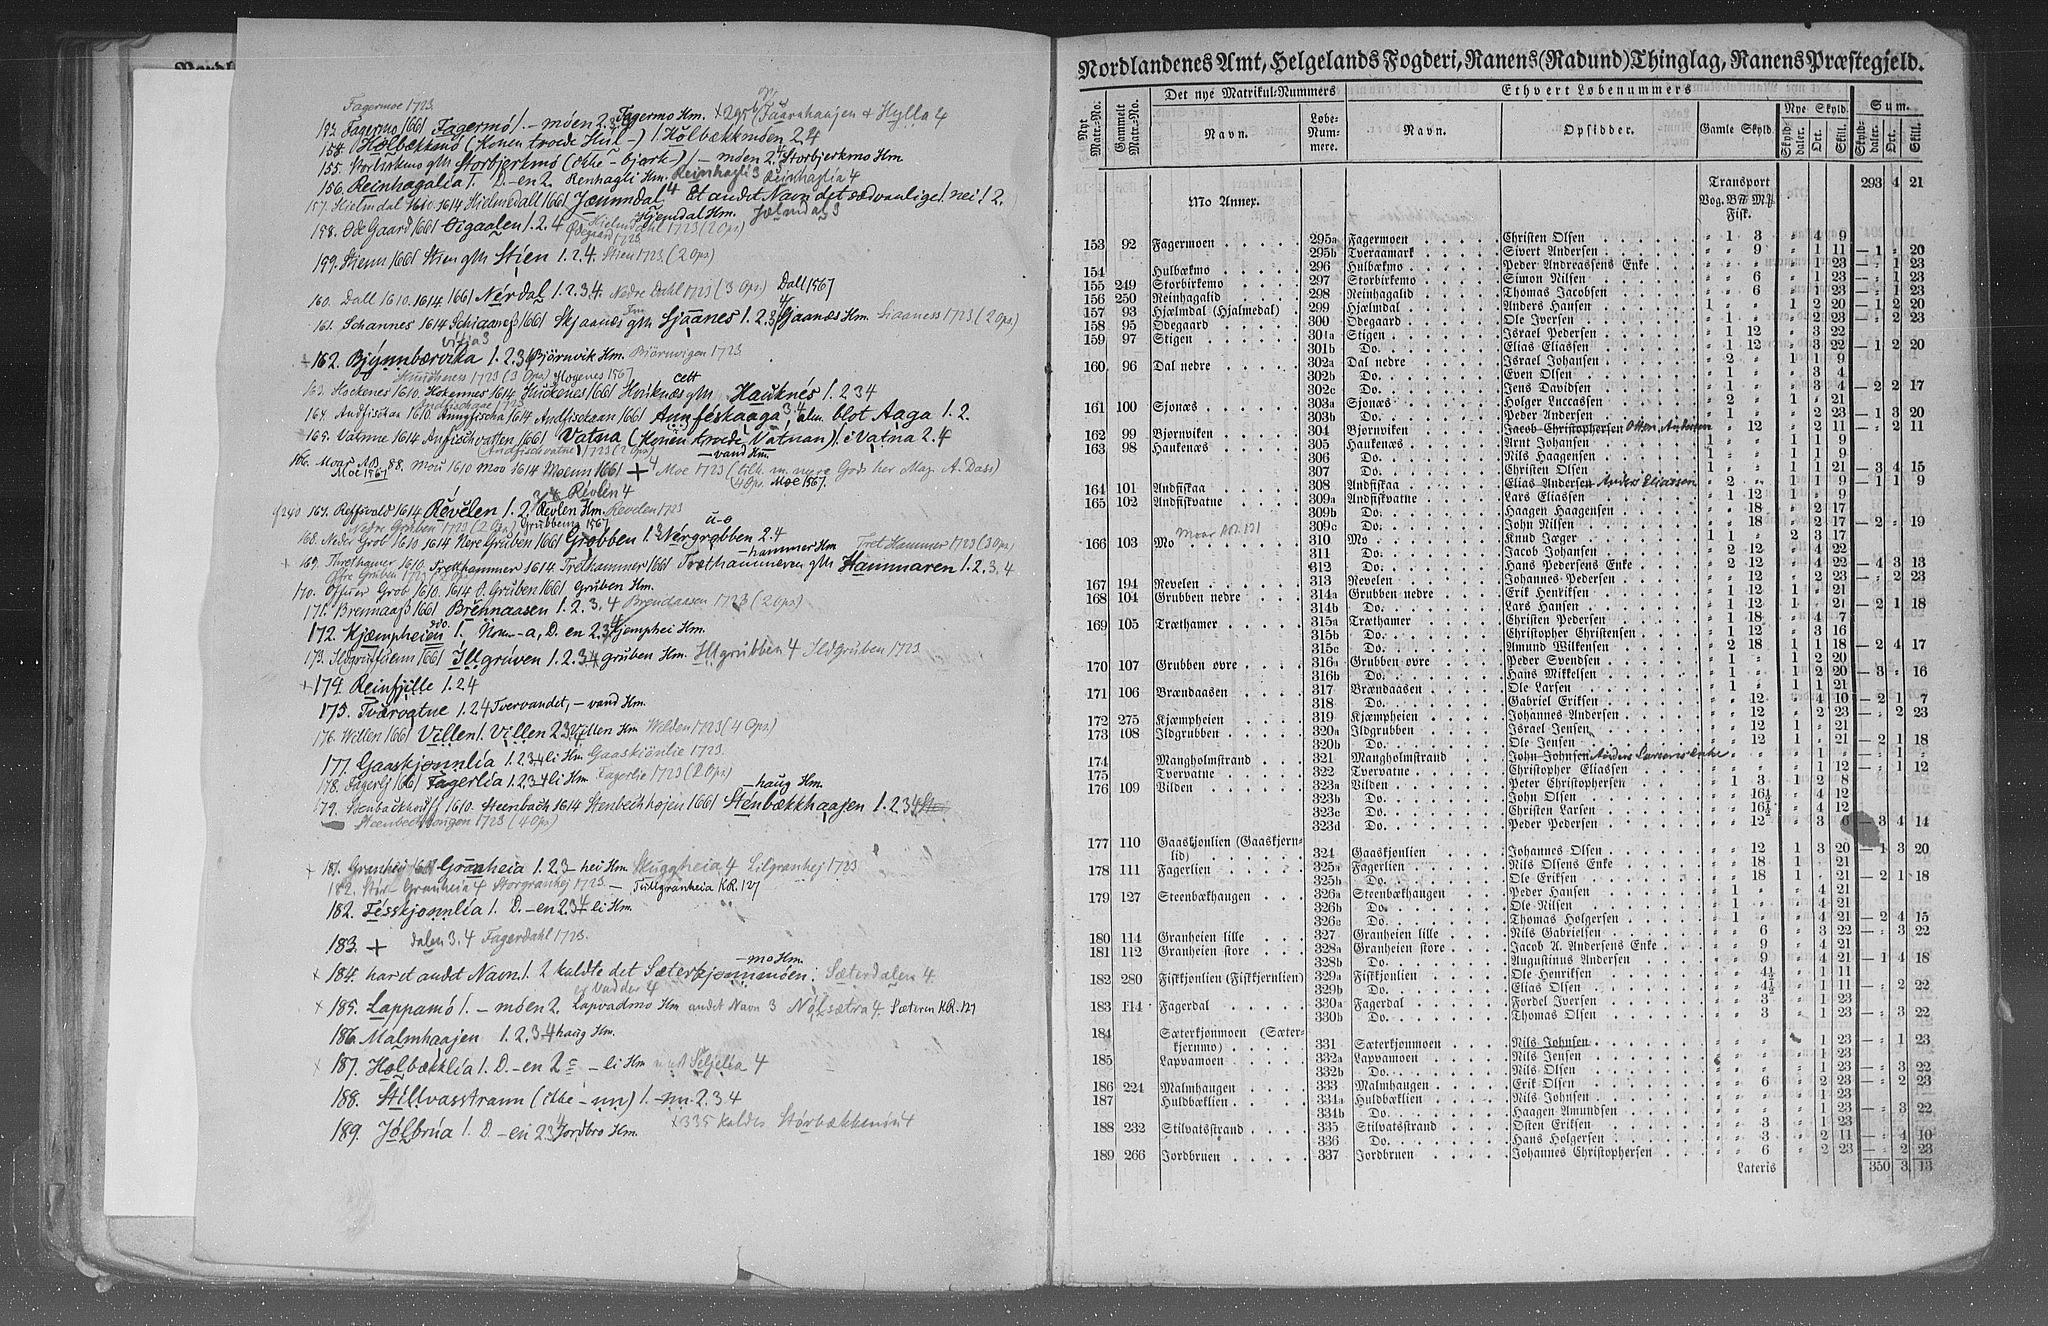 Fagermoe 1723.
153. Fagermo 1661 Fagermo 1. – moen 2. 3 Fagermo Hm. × 295 b Taarnhaajen + Hylla 4
154. Holbækkmo (Konen troede Hul–) 1. Holbækkmoen 2.4
155. Storbirkmo glh Storbjerkmo (ikke – bjork –) 1 – moen 2.4 Storbjerkmo Hm
156. Reinhagalia 1. D. – en 2. Renhagli Hm. Reinhagli 3 Reinhaglia 4
157. Hielmdal 1610 1614 Hielmedall 1661 Jæmmdal 4 Et andt Navn det sædvanlige! nei! 2.
Hjemdal Hm. Jælmdal 3
Hielmdahl 1723 (2 Ops)
158. Øde Gaard 1661 Øigaalen 1. 2. 4
Ødegaard 1723
159. Stienn 1661 Stien glh Stien 1. 2. 4. Stien 1723 (2 Ops)
160. Dall 1610. 1614. 1661 Nerdal 1. 2. 3. 4. Nedre Dahl 1723 (3 Ops) Dall 1567
161. Schannes 1614 Schiaaneß 1661 Skjaanæs glh Sjaanes 1. 2. 3 4 Sjaanæs Hm. Siaaness 1723 (2 Ops)
vikja 3
+ 162. Bjynnbærvika 1. 2. 3 4 Bjørnvik Hm. Biörnvigen 1723.
Hauchness 1723 (3 Ops) Hogenes 1567
163. Hockenes 1610. Hokennes 1614 Huckenes 1661 Houknæs glh Hauknés 1. 2 3 4
Andfischaae 1723
164. Andfischaa 1610. Annffischa 1614 Andfischaan 1661 Annfeskaaga 3.4 alm. blot Aaga 1. 2.
165. Vatnne 1614 Anfischvatten 1661 Vatna (Konen troede Vatnan) i Vatna 2. 4
Andfischvatne 1723 (2 Ops) – vand Hm.
166. Moar AB. 88. Mou 1610 Moo 1614 Moenn 1661 + 4 Moe 1723 (tilh. m. mere Gods her Mag. A. Dass)
Moe 1567 4 Ops. Moe 1567.
167. Reffvald 1614 Révelen 1. 2. 3 4 Révlen 4 Revlen Hm. Revelen 1723
Nedre Gruben 1723 (2 Ops) Grubbenn 1567
168. Neder Grob 1610 1614 Nere Gruben 1661 Grobben 1. 3 Nérgrobben 2. 4
169. Threthamer 1610. Tretthammer 1614. Trethammer 1661 Træthammeren glh Hammaren 1. 2. 3. 4
– hammer Hm Tret Hammer 1723 (3 Ops)
Öfre Gruben 1723 (2 Ops)
170. Offuer Grob 1610 1614 O. Gruben 1661 Gruben Hm.
171. Brennaaß 1661 Brennaasen 1. 2. 3. 4 Brendaasen 1723 (2 Ops)
172. Kjæmpheien 1. Nom – a, D. en 2. 3 4 Kjemphei Hm.
173. Ildgruffuenn 1661 Illgruven 1. 2. 3 4 gruben Hm. Illgrubben 4 Ildgruben 1723
+ 174. Reinfjille 1. 2 4
175. Tværvatne 1. 2 4 Tvervandet, – vand Hm.
176. Willen 1661 Villen 1. Villen 2 3 4 Villen Hm Wilden 1723 (4 Ops)
177. Gaaskjonnlia 1. 2 3 4 li Hm Gaaskiönlie 1723.
178. Fagerlj 1661 Fagerlia 1. 2 3 4 li Hm. Fagerlie 1723 (2 Ops)
179. Stenbackhouff 1610. Steenbach 1614 Stenbechhojen 1661 Sténbækkhaajen 1. 2 3 4
– haug Hm.
Steenbechhougen 1723 (4 Ops)
+ 181. Granhej 1661 Granheia 1. 2 3 – hei Hm. Skuggheia 4 Lilgranhej 1723
182. Stór-Granheia 4 Storgranhej 1723. – Tullgranheia KR. 127
182. Fésskjonnlia 1. D. – en 2. 3 4 li Hm.
183. + dalen 3. 4 Fagerdahl 1723.
+ 184. har et andet Navn 1. 2 kaldte det Sæterkjonnmoen. Sæterdalen 4.
– mo Hm.
× 185. Lappamo 1. – moen 2. Lapvadmo Hm andet Navn 3 Nolsætra 4. Sæteren KR. 127
186. Malmhaajen 1. 2. 3 4 haug Hm.
× 187. Holbækklia 1. D. – en 2 – li Hm Séljelia 4
188. Stillvasstrann (ikke – nn) 1. – nn 2. 3 4
189. Jolbrua 1. D. – en 2 3 4 Jordbro Hm. × 335 kaldes Storbækkmo 4
Nordlandenes Amt, Helgelands Fogderi, Ranens (Radund) Thinglag, Ranens Præstegjeld.
Nyt Matr.-No. Gammelt Matr.-No. Det nye Matrikul-Nummers Navn. Løbe-Nummere. Ethvert Løbenummers Navn. Opsidder. Gamle Skyld. Nye Skyld. Skylddaler. Ort. Skill. Sum. Skylddaler. Ort. Skill.
Transport 293 4 21
Mo Annex. Vog. B℔ M℔. Fisk.
153 92 Fagermoen 295a Fagermoen Christen Olsen " 1 3 " 4 9
295b Tveraamark Sivert Andersen " " 9 " 1 11 — 1 " 20
154 Hulbækmo 296 Hulbækmo Peder Andreassens Enke " " " " 1 23 — " 1 23
155 249 Storbirkemo 297 Storbirkemo Simon Nilsen " " 6 " 1 23 — " 1 23
156 250 Reinhagalid 298 Reinhagalid Thomas Jacobsen " " 6 " 1 23 — " 1 23
157 93 Hjælmdal (Hjalmedal) 299 Hjælmdal Anders Hansen 1 " " 1 2 20 — 1 2 20
158 95 Ødegaard 300 Ødegaard Ole Iversen " 1 " " 2 23 — " 2 23
159 97 Stigen 301a Stigen Israel Pedersen " 1 12 " 3 22
301b Do. Elias Eliassen " 1 12 " 3 22 — 1 2 20
160 96 Dal nedre 302a Dal nedre Israel Johansen " 2 " 1 1 9
302b Do. Even Olsen " 1 " " 3 4
302c Do. Jens Davidsen " 1 " " 3 4 — 2 2 17
161 100 Sjonæs 303a Sjonæs Holger Luccassen " 2 " 1 " 21
303b Do. Peder Andersen " 1 " " 2 23 — 1 3 20
162 99 Bjørnviken 304 Bjørnviken Jacob Christophersen Otten Andersen " " 12 " 2 11 — " 2 11
163 98 Haukenæs 305 Haukenæs Arnt Johansen 1 " " 1 1 9
306 Do. Nils Haagensen 1 " " 1 1 9
307 Do. Christen Olsen 1 " " 1 1 21 — 3 4 15
164 101 Andfiskaa 308 Andfiskaa Elias Andersen Anders Eliassen " 2 " 1 1 9 — 1 1 9
165 102 Andfiskvatne 309a Andfiskvatne Lars Eliassen " 1 12 1 " 9
309b Do. Haagen Haagensen " " 18 " 2 17
309c Do. John Nilsen " " 18 " 2 17 — 2 " 19
Moar AB. 121
166 103 Mo 310 Mo Knud Jæger 1 1 " 2 3 17
311 Do. Jacob Johansen " 2 12 " 4 22
312 Do. Hans Pedersens Enke " 2 12 " 4 22 — 4 3 13
167 194 Revelen 313 Revelen Johannes Pedersen " " " " 2 23 — " 2 23
168 104 Grubben nedre 314a Grubben nedre Erik Henriksen " 1 12 1 " 21
314b Do. Lars Hansen " 1 12 1 " 21 — 2 1 18
169 105 Træthamer 315a Træthamer Christen Pedersen " 1 18 " 4 7
315b Do. Christopher Christensen " 1 12 " 3 16
315c Do. Amund Wilkensen " 2 18 1 1 18 — 2 4 17
170 107 Grubben øvre 316a Grubben øvre Peder Svendsen " 1 " 1 2 20
316b Do. Hans Mikkelsen " 1 " 1 2 20 — 3 " 16
171 106 Brændaasen 317 Brændaasen Ole Larsen " 1 " 1 1 21
318 Do. Gabriel Eriksen " " 12 " 4 10 — 2 1 7
172 275 Kjæmpheien 319 Kjæmpheien Johannes Andersen " " 12 " 2 23 — " 2 23
173 108 Ildgrubben 320a Ildgrubben Israel Jensen " " 12 1 " 21
320b Do. Ole Jensen " " 12 1 " 21 — 2 1 18
174 Mangholmstrand 321 Mangholmstrand John Johnsen " " " " 1 " — " 1 "
175 Tvervatne 322 Tvervatne Christopher Eliassen " " " " 1 12 — " 1 12
176 109 Vilden 323a Vilden Peter Christophersen " 1 3 1 2 8
323b Do. John Olsen " " 16½ " 4 12
323c Do. Christen Larsen " " 16½ " 4 12
323d Do. Peder Pedersen " " 12 " 3 6 — 3 4 14
177 110 Gaaskjonlien (Gaaskjern-
lid) 324 Gaaskjonlien Johannes Olsen " " 12 1 3 20 — 1 3 20
178 111 Fagerlien 325a Fagerlien Nils Olsens Enke " " 18 1 " 21
325b Do. Ole Eriksen " " 18 1 " 21 — 2 1 18
179 127 Steenbækhaugen 326a Steenbækhaugen Peder Hansen " 1 " " 4 21
326b Do. Ole Nilsen " 1 " " 4 21
326c Do. Thomas Holgersen " 1 " " 4 21 — 2 4 15
180 114 Granheien lille 327 Granheien lille Nils Gabrielsen " " 6 " 3 22 — " 3 22
181 112 Granheien store 328a Granheien store Jacob A. Andersens Enke " " 9 " 4 21
328b Do. Augustinus Andersen " " 9 " 4 21 — 1 4 18
182 280 Fiskkjonlien (Fiskkjernlien) 329a Fiskkjonlien Ole Henriksen " " 4½ " 1 11
329b Do. Elias Olsen " " 4½ " 1 11 — " 2 22
183 114 Fagerdal 330a Fagerdal Fordel Iversen " " 3 " 1 23
330b Do. Thomas Olsen " " 3 " 1 23 — " 3 22
184 Sæterkjonmoen (Sæter-
kjernmo) 331 Sæterkjonmoen Nils Johnsen " " " " 1 23 — " 1 23
185 Lapvamoen 332a Lapvamoen Nils Jensen " " " " 1 23
332b Do. Nils Olsen " " " " 1 23 — " 3 22
186 224 Malmhaugen 333 Malmhaugen Erik Olsen " " 6 " 2 23 — " 2 23
187 Huldbæklien 334a Huldbæklien Nils Johnsen " " " " 1 23
334b Do. Haagen Amundsen " " " " 1 23 — " 3 22
188 232 Stilvatsstrand 335 Stilvatsstrand Osten Eriksen " " 3 " 1 23
336 Do. Hans Holgersen " " 3 " 2 11 — " 4 10
189 266 Jordbruen 337 Jordbruen Johannes Christophersen " " 6 " 2 23 — " 2 23
Lateris 350 3 13